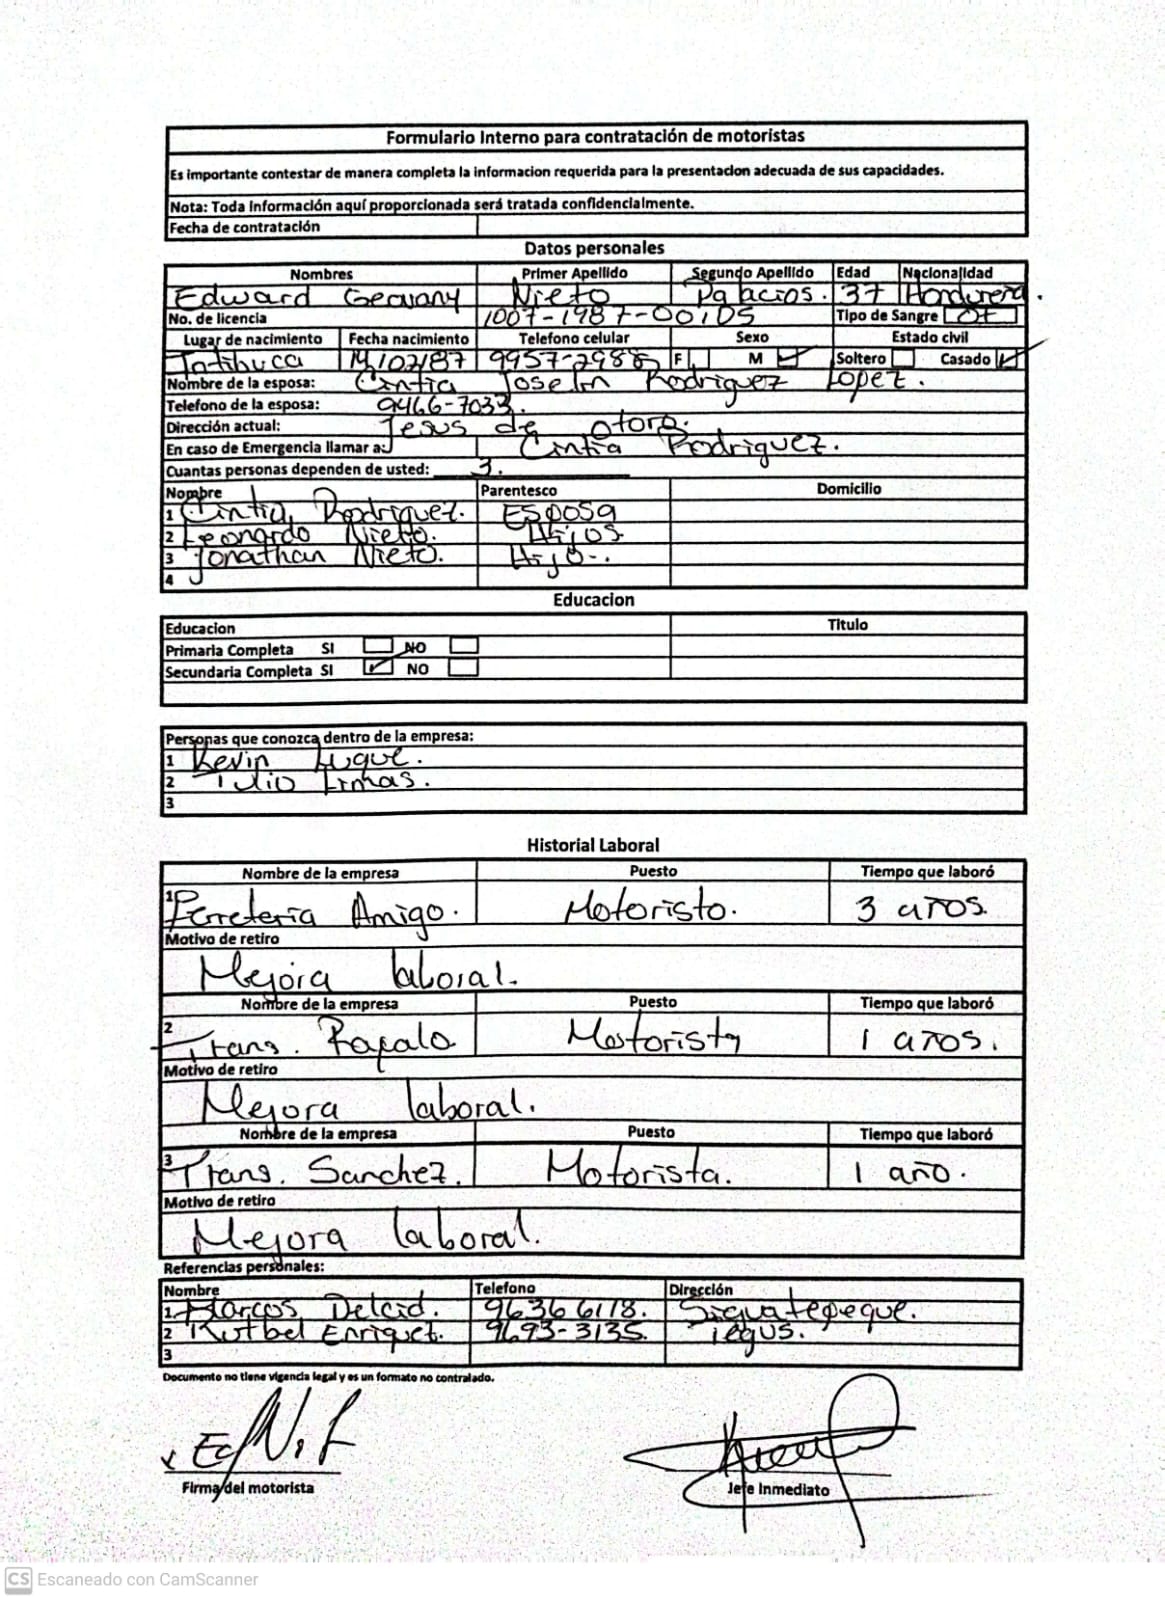 Formulario Interno para contratación de motoristas
Es importante contestar de manera completa la informacion requerida para la presentacion adecuada de sus capacidades.
Nota: Toda información aquí proporcionada será tratada confidencialmente.
Fecha de contratación
Datos personales
Nombres Primer Apellido Segundo Apellido Edad Nacionalidad
Edward Geovany Nieto Palacios. 37 Hondureña.
No. de licencia 1007-1987-00105 Tipo de Sangre O+
Lugar de nacimiento Fecha nacimiento Telefono celular Sexo Estado civil
Intibuca 14/02/87 9957-2988 F M Soltero Casado
Nombre de la esposa: Cintia Joselin Rodriguez Lopez.
Telefono de la esposa: 9466-7033.
Dirección actual: Jesus de otoro.
En caso de Emergencia llamar a: Cintia Rodriguez.
Cuantas personas dependen de usted: 3.
Nombre Parentesco Domicilio
1 Cintia Rodriguez. Esposa
2 Leonardo Nieto. Hijos
3 Jonathan Nieto. Hijo.
4
Educacion
Educacion Titulo
Primaria Completa SI NO
Secundaria Completa SI NO
Personas que conozca dentro de la empresa:
1 Kevin Luque.
2 Tulio
3
Historial Laboral
Nombre de la empresa Puesto Tiempo que laboró
1 Ferreteria Amigo. Motoristo. 3 años.
Motivo de retiro
Mejora laboral.
Nombre de la empresa Puesto Tiempo que laboró
2 Trans. Rapalo Motorista 1 años.
Motivo de retiro
Mejora laboral.
Nombre de la empresa Puesto Tiempo que laboró
3 Trans. Sanchez. Motorista. 1 año.
Motivo de retiro
Mejora laboral.
Referencias personales:
Nombre Telefono Dirección
1 Marcos Delcid. 9636 6178. Siguatepeque.
2 Enriquez. 9693-3135. Tegus.
3
Documento no tiene vigencia legal y es un formato no contralado.
Firma del motorista Jefe Inmediato
CS Escaneado con CamScanner